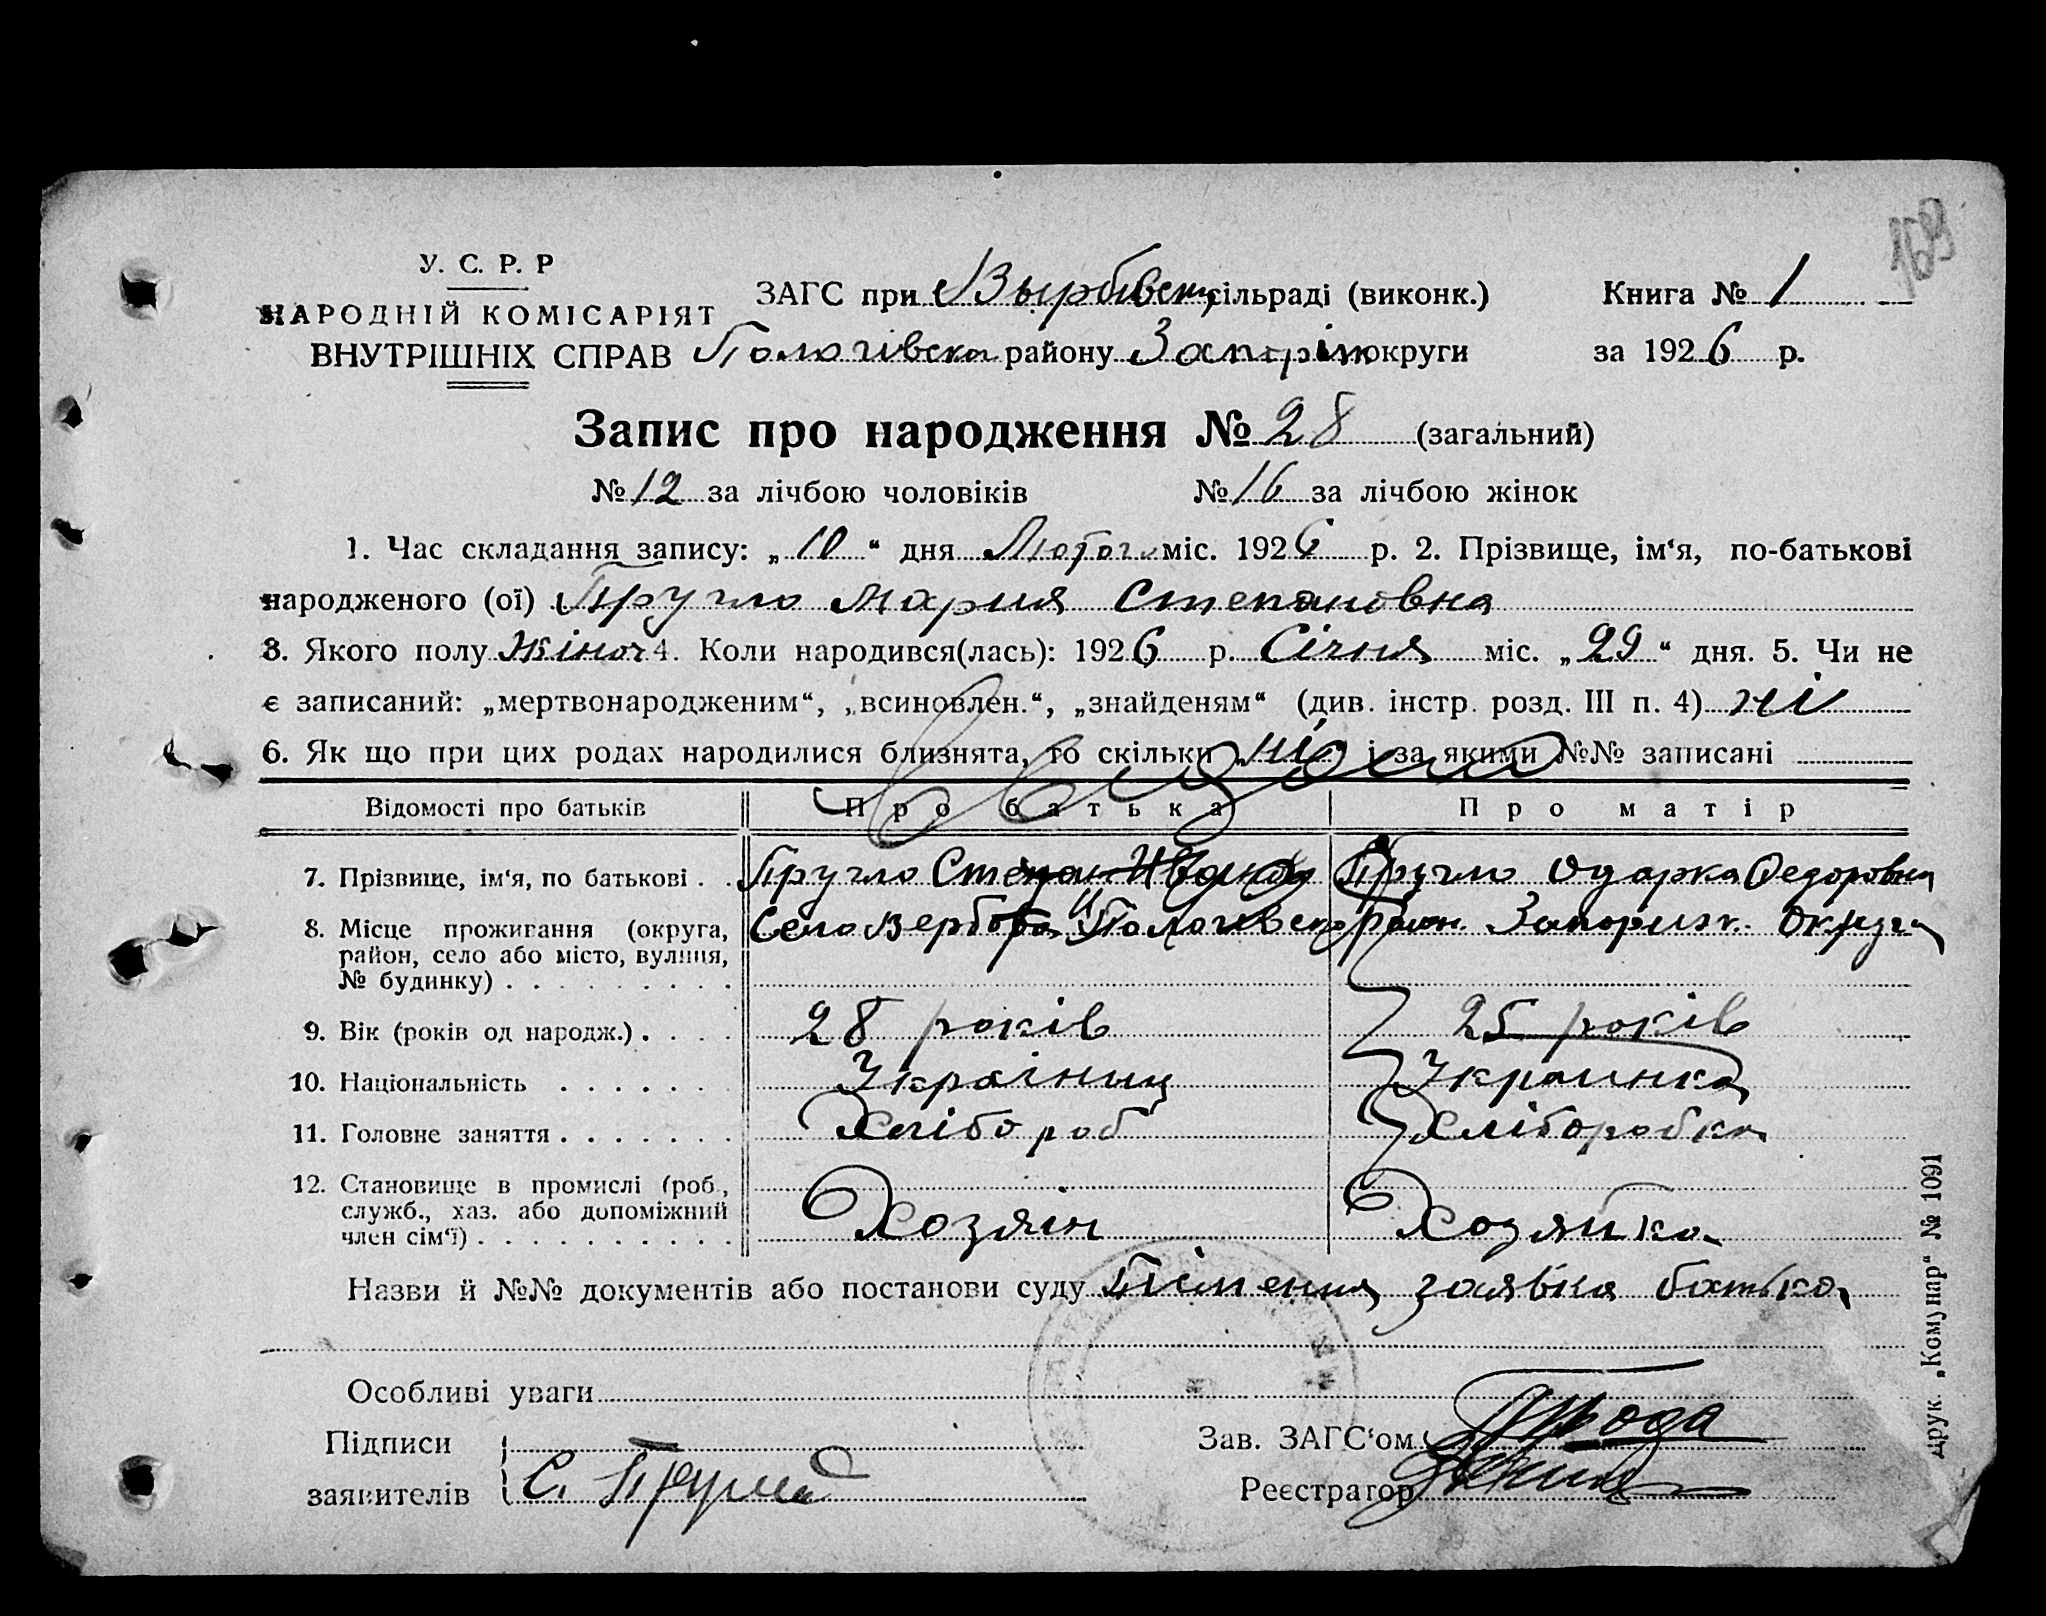 169
У. С. Р. Р
НАРОДНІЙ КОМІСАРІЯТ
ВНУТРІШНІХ СПРАВ
ЗАГС при Вырбівськ сільраді (виконк.) Книга № 1
Пологівська району Запоріж округи за 1926 р.
Запис про народження № 28 (загальний)
№ 12 за лічбою чоловіків № 16 за лічбою жінок
1. Час складання запису: „10“ дня Лютого міс. 1926 р. 2. Прізвище, ім‘я, по-батькові
народженого (ої) Пругло Мария Степановна
3. Якого полу жіноч 4. Коли народився(лась): 1926 р. Січня міс. „29“ дня. 5. Чи не
є записаний: „мертвонародженим“, „всиновлен.“, „знайденям“ (див. інстр. розд. III п. 4) ні
6. Як що при цих родах народилися близнята, то скільки ні і за якими №№ записані
Відомості про батьків Про батька Про матір
7. Прізвище, ім‘я, по батькові . . Пругло Степан Иванов Пругло Одарка Федоровна
8. Місце проживання (округа, Село Вербова Пологівского район. Запориж. Округа
район, село або місто, вулиця,
№ будинку) . . . . . . . . .
9. Вік (років од народж.) . . . . 28 років 25 років
10. Національність . . . . . . Українец Украинка
11. Головне заняття . . . . . . . Хлібороб Хліборобка
12. Становище в промислі (роб.,
служб., хаз. або допоміжний
член сім‘ї) . . . . . . . . . . Хозяін Хозяйка
Назви й №№ документів або постанови суду заявка батька
Особливі уваги
Підписи
заявителів С. Пругло
Зав. ЗАГС‘ом
Реєстратор
Друк. „Комунар“ № 1091